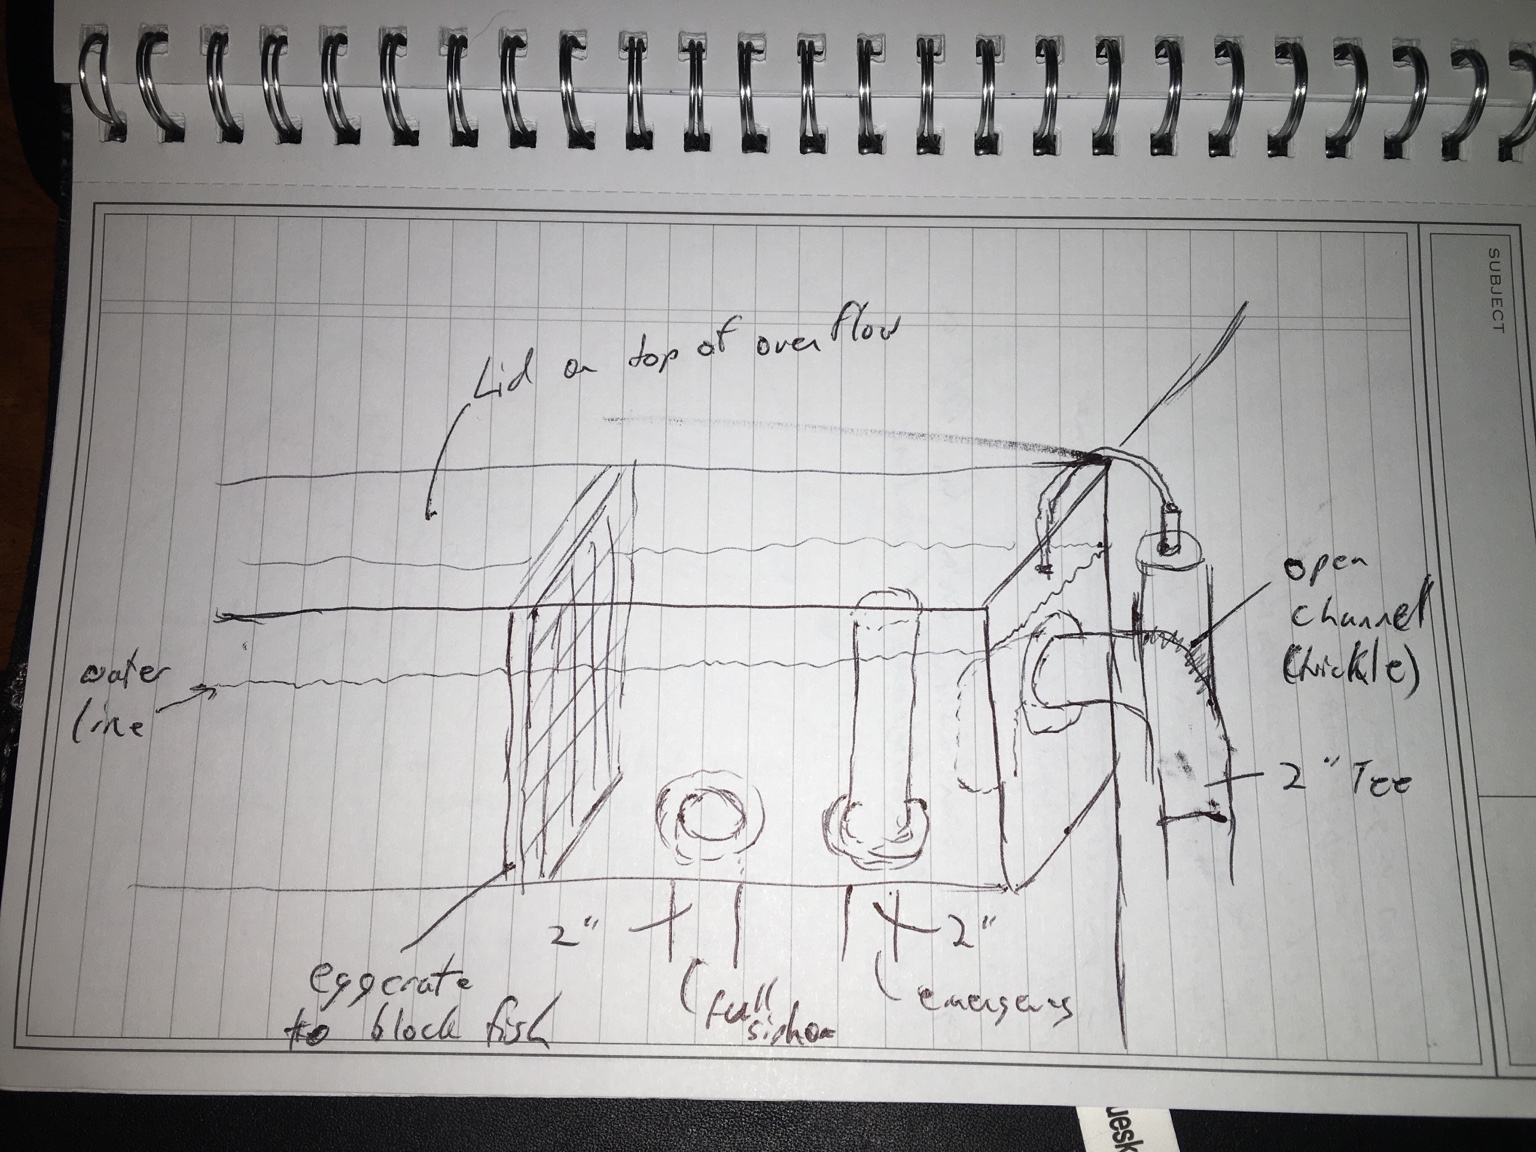 SUBJECT
Lid on top of overflow
open
channel
(trickle)
water
line
2" Tee
2"
2"
eggcrate
to block fish
full
siphon
emergency
uesk